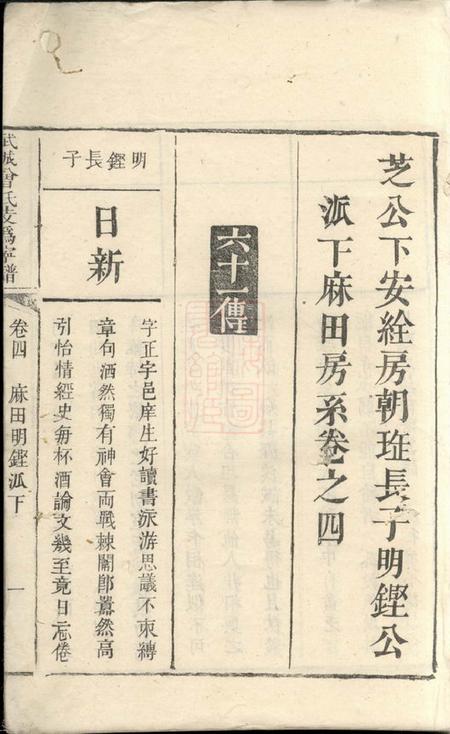 芝公下安絟房朝班長子明鏗公
派下麻田房系卷之四
六十一傳
明鏗長子
日新
字正字邑庠生好讀書泳游思議不束縛
章句洒然獨有神會兩戰棘闈卽囂然高
引怡情經史每杯酒論文幾至竟日忘倦
武城曾氏支為寧譜
卷四 麻田明鏗派下 一